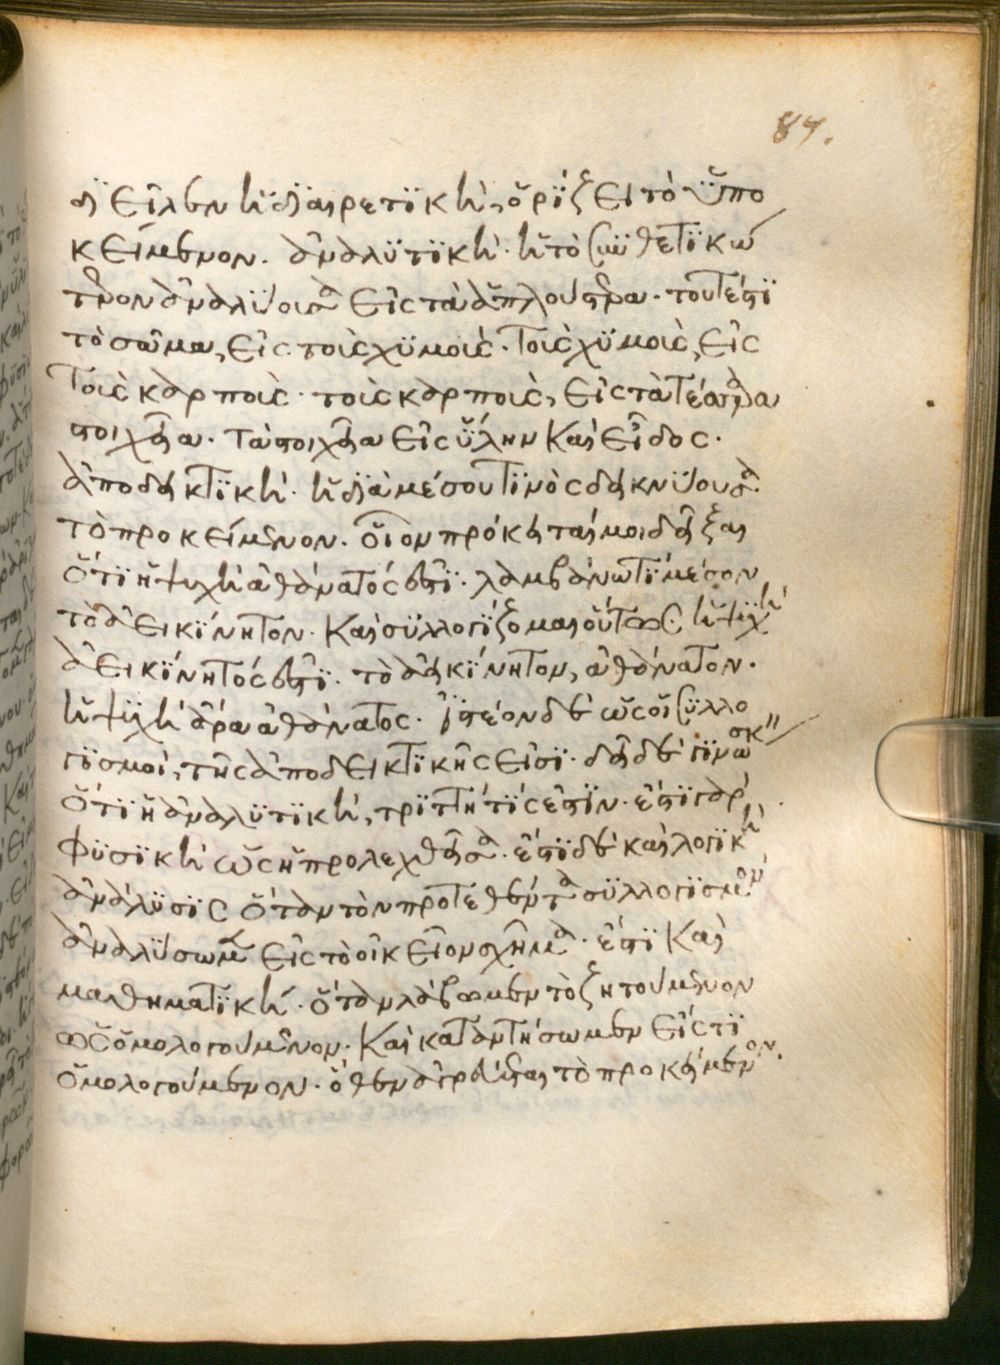 84.
διεῖλεν ἡ διαιρετικὴ, ὁρίζει τὸ ὑπο
κείμενον. ἀναλυτικὴ. ἡ τὸ συνθετικώ
τερον ἀναλύουσα εἰς τὰ ἁπλούστερα. τουτέστι
τὸ σῶμα, εἰς τοὺς χυμούς. τοὺς χυμοὺς, εἰς
τοὺς καρποὺς. τοὺς καρποὺς, εἰς τὰ τέσσαρα
στοιχεῖα. τὰ στοιχεῖα εἰς ὕλην καὶ εἶδος.
ἀποδεικτικὴ. ἡ διὰ μέσου τινὸς δεικνύουσα
τὸ προκείμενον. οἷον πρόκειταί μοι δεῖξαι
ὅτι ἡ ψυχὴ ἀθάνατός ἐστι. λαμβάνω τι μέσον
τὸ ἀεικίνητον. καὶ συλλογίζομαι οὕτως ἡ ψυχὴ
ἀεικίνητός ἐστι. τὸ ἀεικίνητον, ἀθάνατον.
ἡ ψυχὴ ἄρα ἀθάνατος. ἰστέον δὲ ὡς οἱ συλλο
γισμοὶ, τῆς ἀποδεικτικῆς εἰσι. δεῖ δὲ γινώσκ
ὅτι ἡ ἀναλυτικὴ, τριττή τίς ἐστιν. ἔστι γὰρ
φυσικὴ ὡς ἡ προλεχθεῖσα. ἔστι δὲ καὶ λογικὴ
ἀνάλυσις ὅταν τὸν προτεθέντα συλλογισμὸν
ἀναλύσωμεν εἰς τὸ οἰκεῖον σχῆμα. ἔστι καὶ
μαθηματικὴ. ὅταν λάβωμεν τὸ ζητούμενον
ὡς ὁμολογούμενον. καὶ καταντήσωμεν εἴς τι
ὁμολογούμενον. ὅθεν ἀποδείκνυται τὸ προκείμενον.